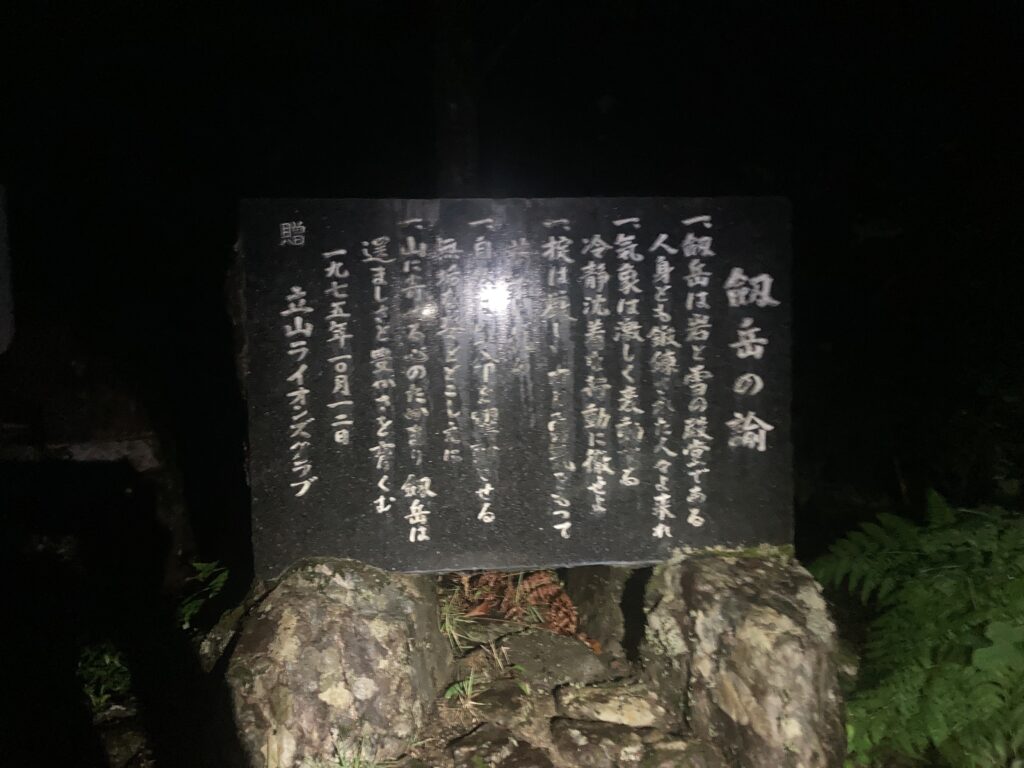 劔岳の諭
一、劔岳は岩と雪の殿堂である
人身とも鍛練された人々よ来れ
一、気象は激しく変動する
冷静沈着な行動に徹せよ
一、掟は厳し
一、自 させる
無垢 とこしえに
一、山に寄 る心のたかまり 劔岳は
逞ましさと豊かさを育くむ
一九七五年一〇月一二日
立山ライオンズクラブ
贈